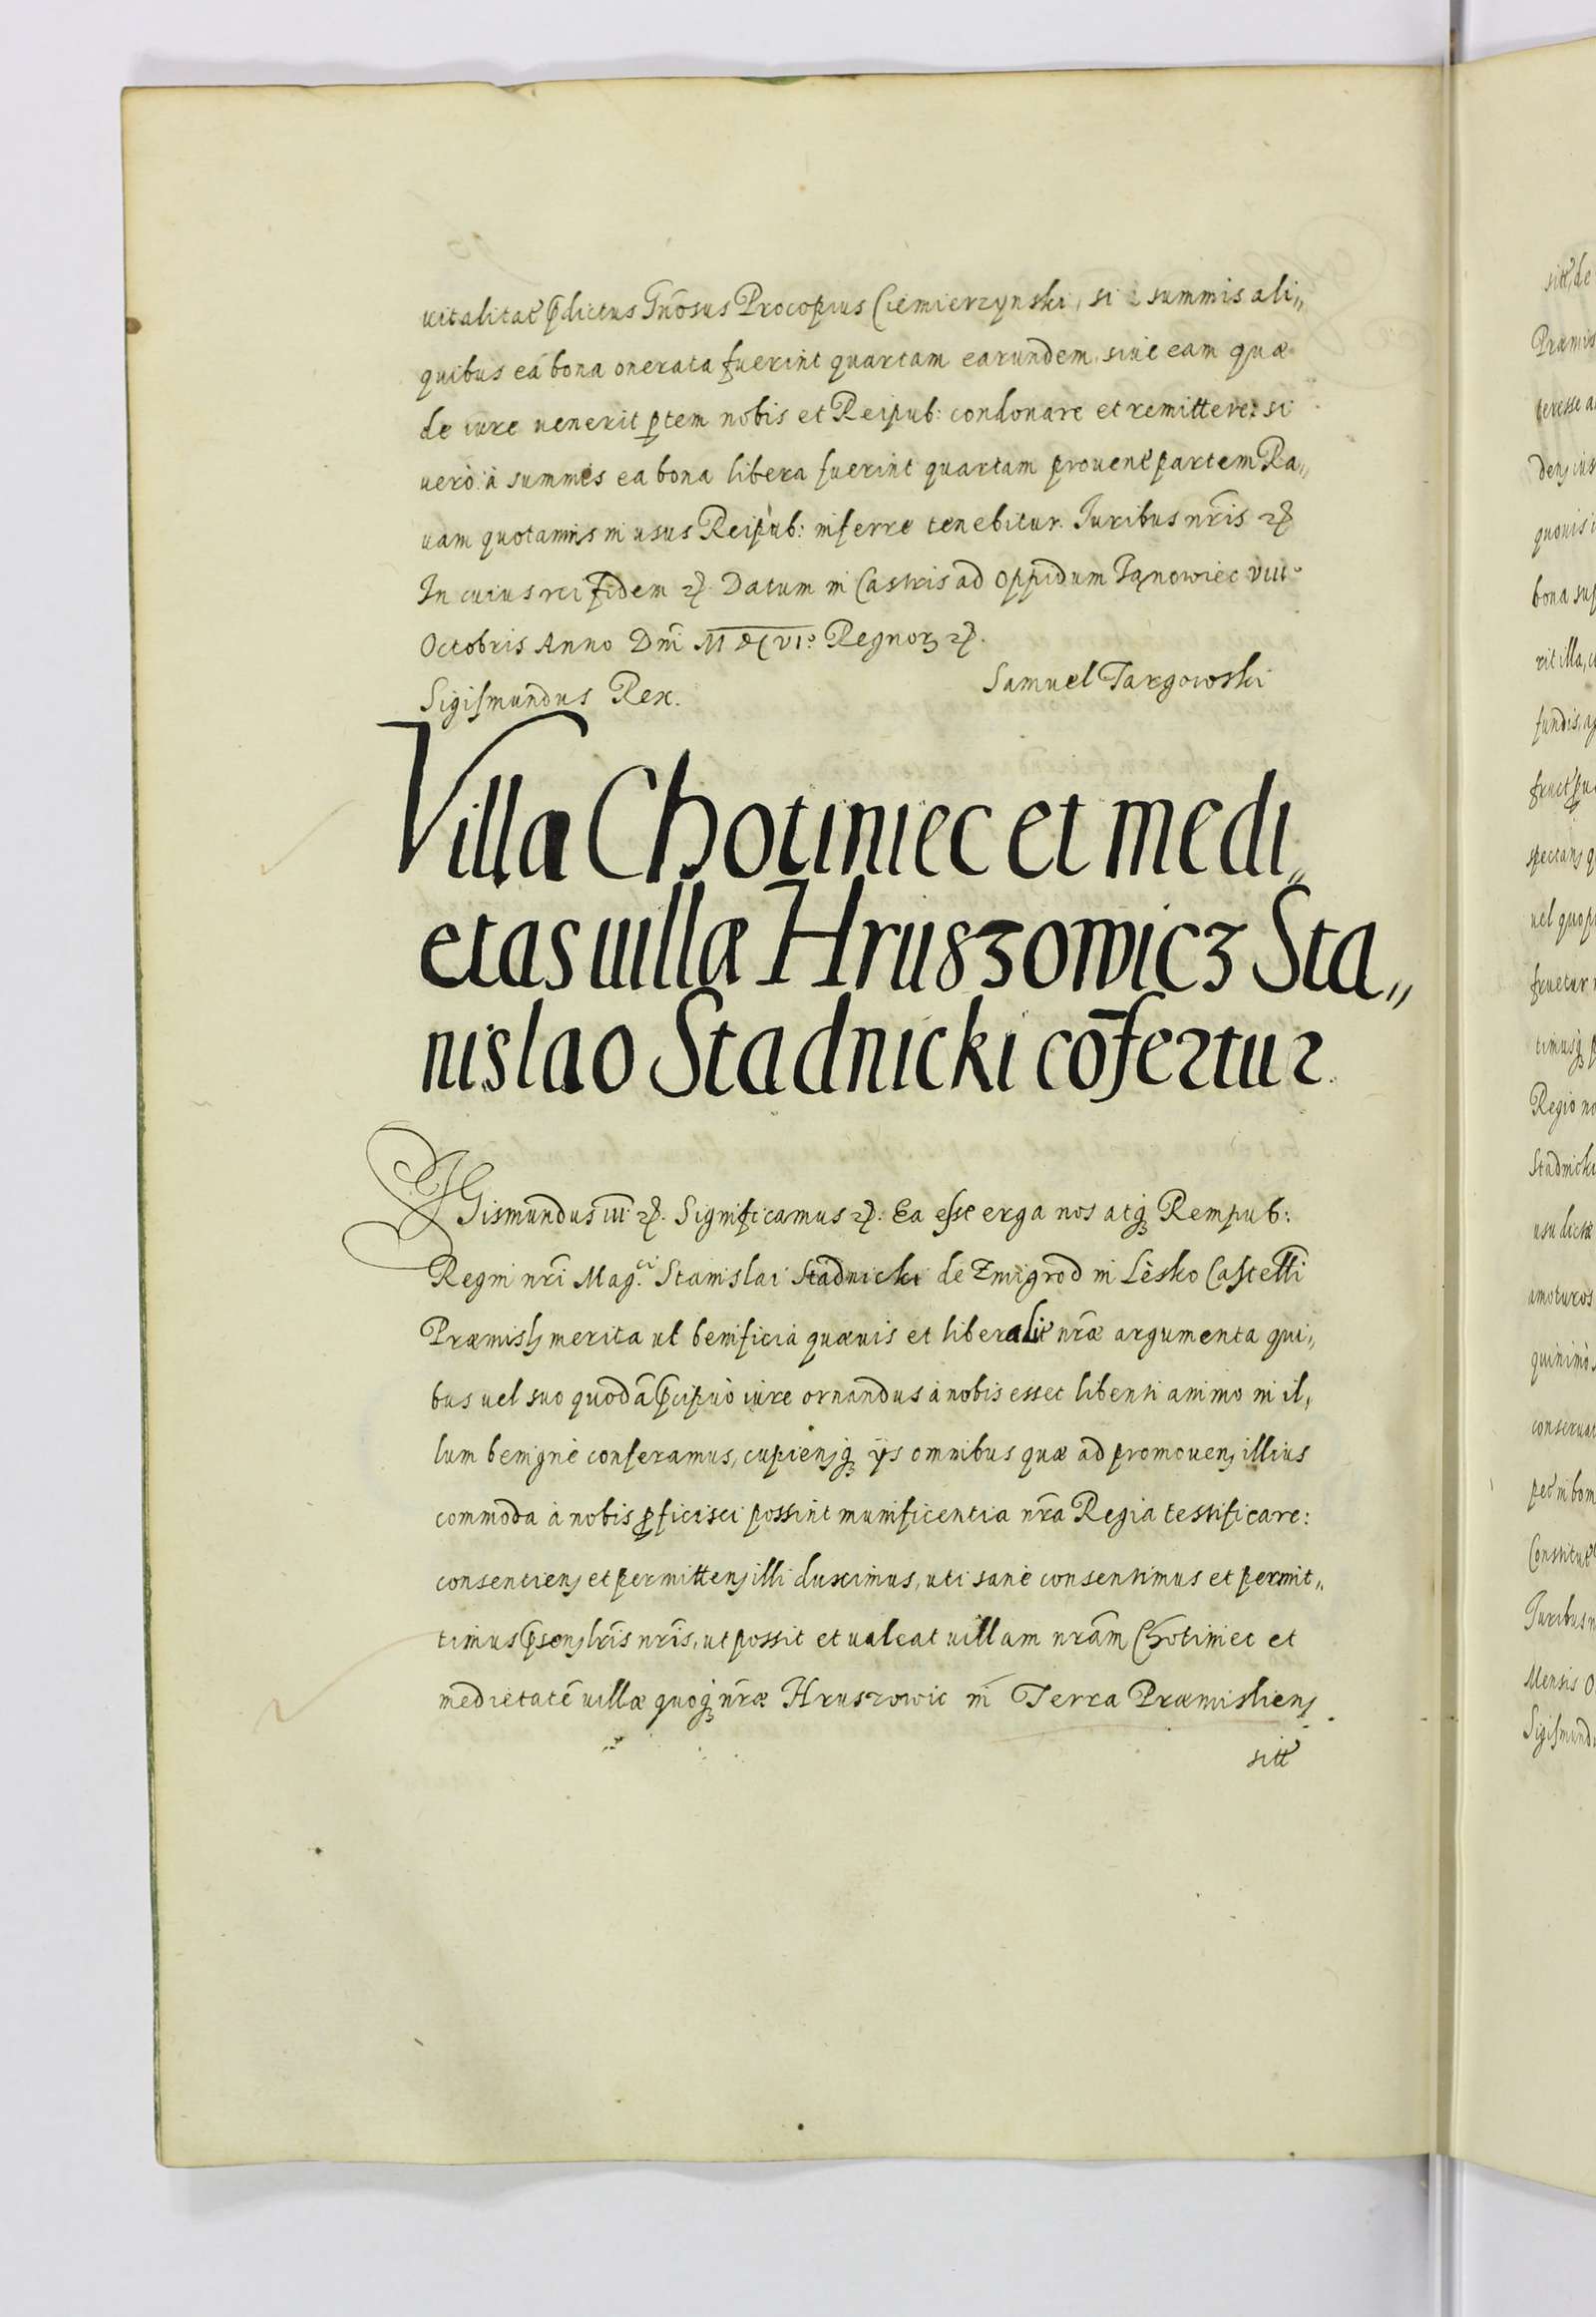 uitalitat p̄dictus Gn̄osus Procopius Ciemierzynski, si summis ali„
quibus ea bona onerata fuerint quartam earundem, siue eam quæ
de iure uenerit ꝑtem nobis et Reipub: condonare et remittere: si
uerò à summis ea bona libera fuerint quartam prouent partem Ra„
uam quotannis in usus Reipub: inferre tenebitur. Iuribus nr̄is ꝛc̄
In cuius rei fidem ꝛc̄. Datum in Castris ad oppidum Janowiec VIII°
Octobris Anno Dn̄i MDCVI° Regnorꝫ ꝛc̄.
Sigismundus Rex. Samuel Targowski
Villa Chotiniec et medi„
etas uillæ Hruszowicz Sta„
nislao Stadnicki cōfertur.
SIGismundus III ꝛc̄. Significamus ꝛc̄. Ea esse erga nos atqꝫ Rempub:
Regni nr̄i Mag.ci Stanislai Stadnicki de Zmigrod in Lesko Castelli
Præmislꝫ merita ut benificia quæuis et liberalit nr̄æ argumenta qui„
bus uel suo quodā p̄cipuò iure ornandus à nobis esset libenti animo in il„
lum benignè conferamus, cupiensqꝫ ijs omnibus quæ ad promouenꝫ illius
commoda à nobis ꝓficisci possint munificentia nr̄a Regia testificare:
consentienꝫ et permittenꝫ illi duximus, uti sanè consentimus et permit„
timus p̄senꝫ lr̄is nr̄is, ut possit et ualeat uillam nr̄am Chotiniec et
medietatē uillæ quoqꝫ nr̄æ Hruszowic in Terra Præmislienꝫ
sitt